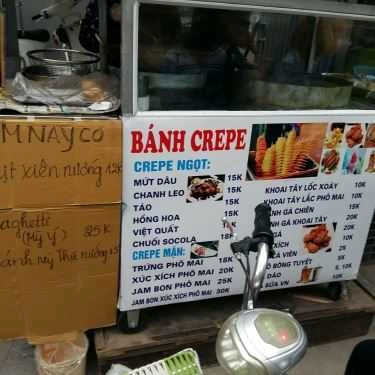 MNAYCÓ
xiên nướng 12K
(Mỳ Ý) 25K
BÁNH CREPE
CREPE NGỌT:
MỨT DÂU 15K
CHANH LEO 15K
TÁO 15K
HỒNG HOA 15K
VIỆT QUẤT
CHUỐI SOCOLA 18K
CREPE MẶN:
TRỨNG PHÔ MAI 18K
XÚC XÍCH PHÔ MAI 20K
JAM BON PHÔ MAI 25K
JAM BON XÚC XÍCH PHÔ MAI 30K
KHOAI TÂY LỐC XOÁY 10K
KHOAI TÂY LẮC PHÔ MAI 20K
GÀ CHIÊN 15K
GÀ KHOAI TÂY 20K
GÀ 20K
XÍCH 10K
CÁ VIÊN 25K
BÔNG TUYẾT 5K
DÁO 5, 10K
SỮA VN 10K